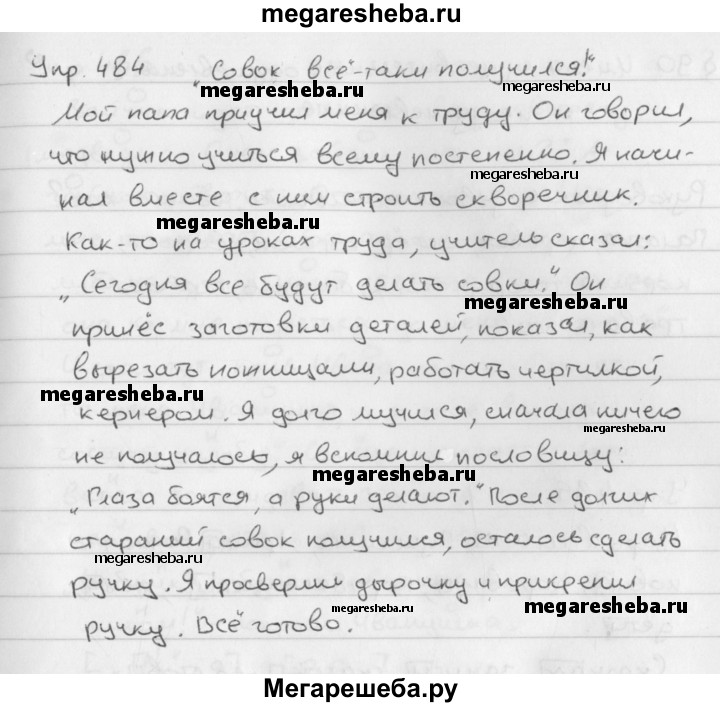 megaresheba.ru
Упр. 484 „Совок всё-таки получился!“
megaresheba.ru megaresheba.ru
Мой папа приучил меня к труду. Он говорил,
megaresheba.ru
что нужно учиться всему постепенно. Я начи-
megaresheba.ru
нал вместе с ним строить скворечник.
megaresheba.ru
Как-то на уроках труда, учитель сказал:
„Сегодня все будут делать совки.“ Он
megaresheba.ru
принёс заготовки деталей, показал, как
вырезать ножницами, работать чертилкой,
megaresheba.ru
кернером. Я долго мучился, сначала ничего
megaresheba.ru
не получалось, я вспомнил пословицу:
megaresheba.ru
„Глаза боятся, а руки делают.“ После долгих
стараний совок получился, осталось сделать
megaresheba.ru
ручку. Я просверлил дырочку и прикрепил
megaresheba.ru megaresheba.ru
ручку. Всё готово.
Мегарешеба.ру